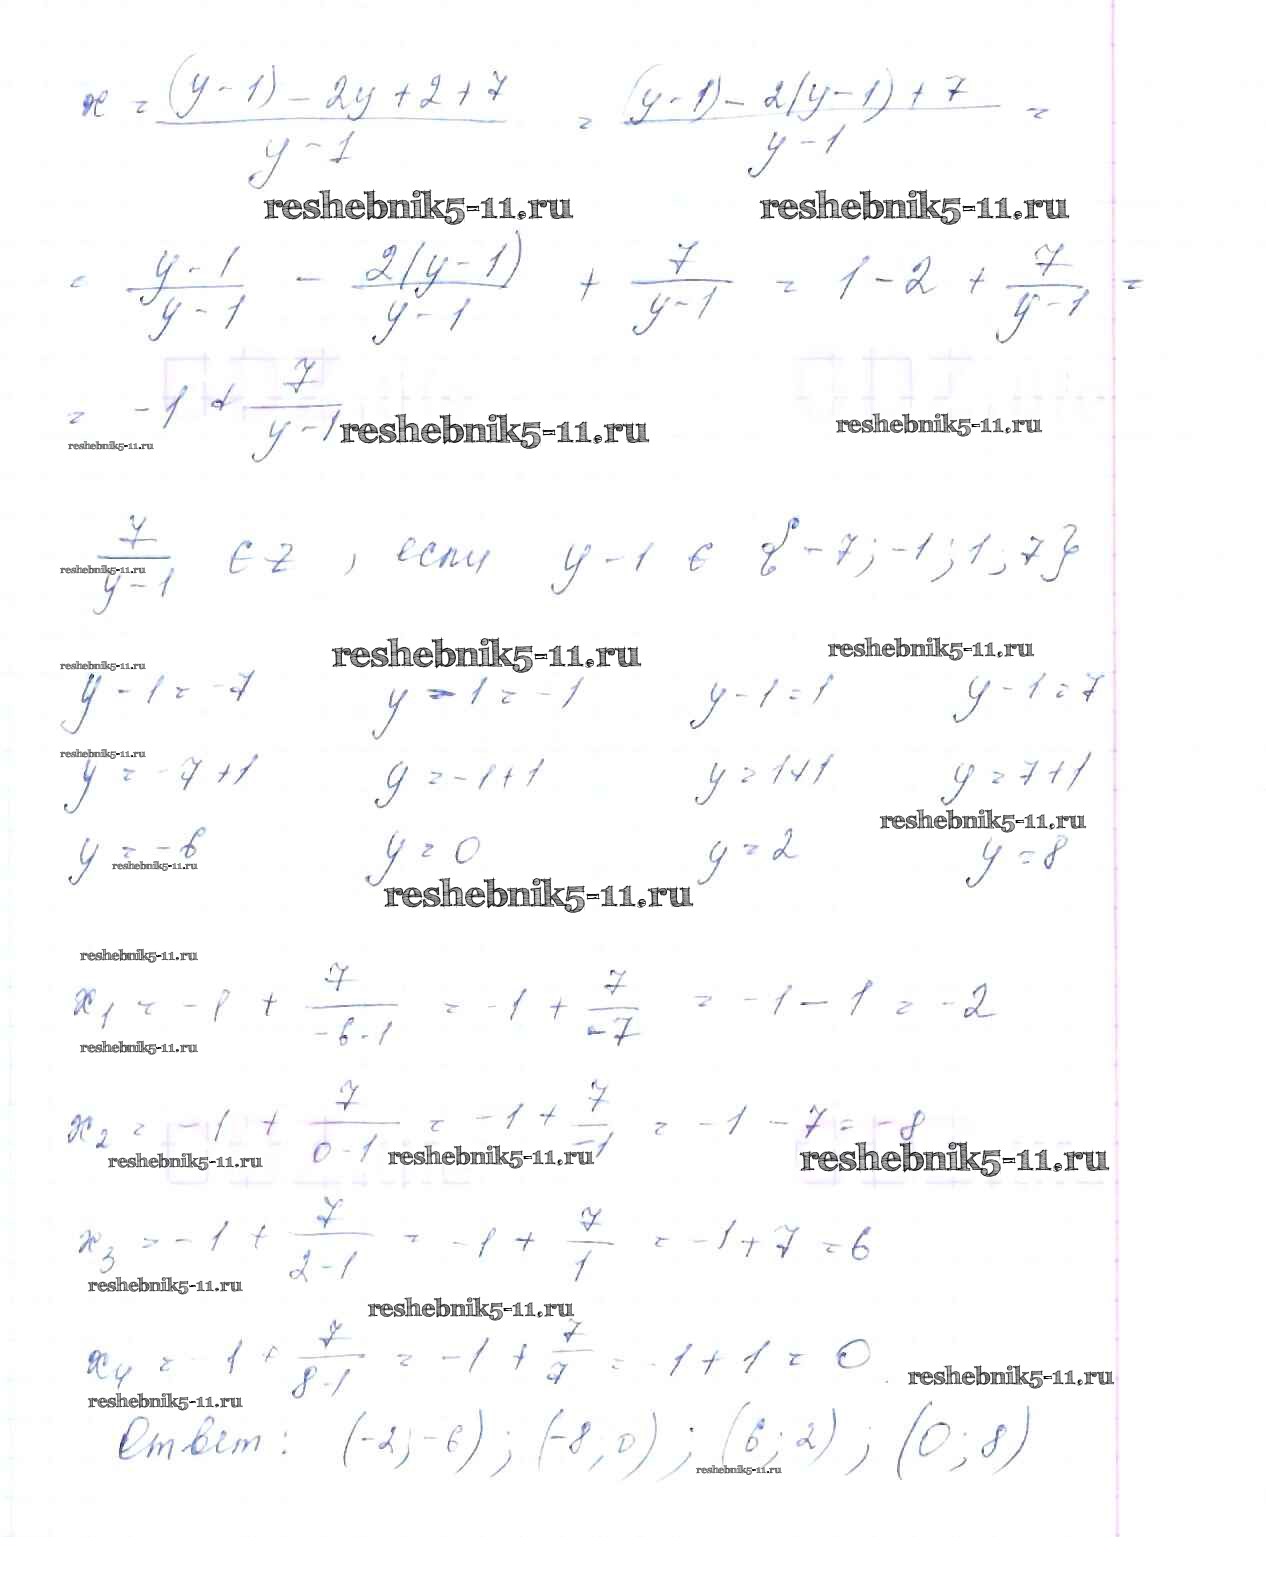 x = ((y-1) - 2y + 2 + 7)/(y-1) = ((y-1) - 2(y-1) + 7)/(y-1) =
reshebnik5-11.ru reshebnik5-11.ru
= (y-1)/(y-1) - 2(y-1)/(y-1) + 7/(y-1) = 1 - 2 + 7/(y-1) =
= -1 + 7/(y-1)
reshebnik5-11.ru reshebnik5-11.ru
reshebnik5-11.ru
7/(y-1) ∈ Z, если y-1 ∈ {-7; -1; 1; 7}
reshebnik5-11.ru
reshebnik5-11.ru reshebnik5-11.ru
reshebnik5-11.ru
y-1 = -7 y-1 = -1 y-1 = 1 y-1 = 7
reshebnik5-11.ru
y = -7+1 y = -1+1 y = 1+1 y = 7+1
reshebnik5-11.ru
y = -6 y = 0 y = 2 y = 8
reshebnik5-11.ru
reshebnik5-11.ru
reshebnik5-11.ru
x₁ = -1 + 7/(-6-1) = -1 + 7/(-7) = -1 - 1 = -2
reshebnik5-11.ru
x₂ = -1 + 7/(0-1) = -1 + 7/(-1) = -1 - 7 = -8
reshebnik5-11.ru reshebnik5-11.ru reshebnik5-11.ru
x₃ = -1 + 7/(2-1) = -1 + 7/1 = -1 + 7 = 6
reshebnik5-11.ru
reshebnik5-11.ru
x₄ = -1 + 7/(8-1) = -1 + 7/7 = -1 + 1 = 0
reshebnik5-11.ru
reshebnik5-11.ru
Ответ: (-2; -6); (-8; 0); (6; 2); (0; 8)
reshebnik5-11.ru